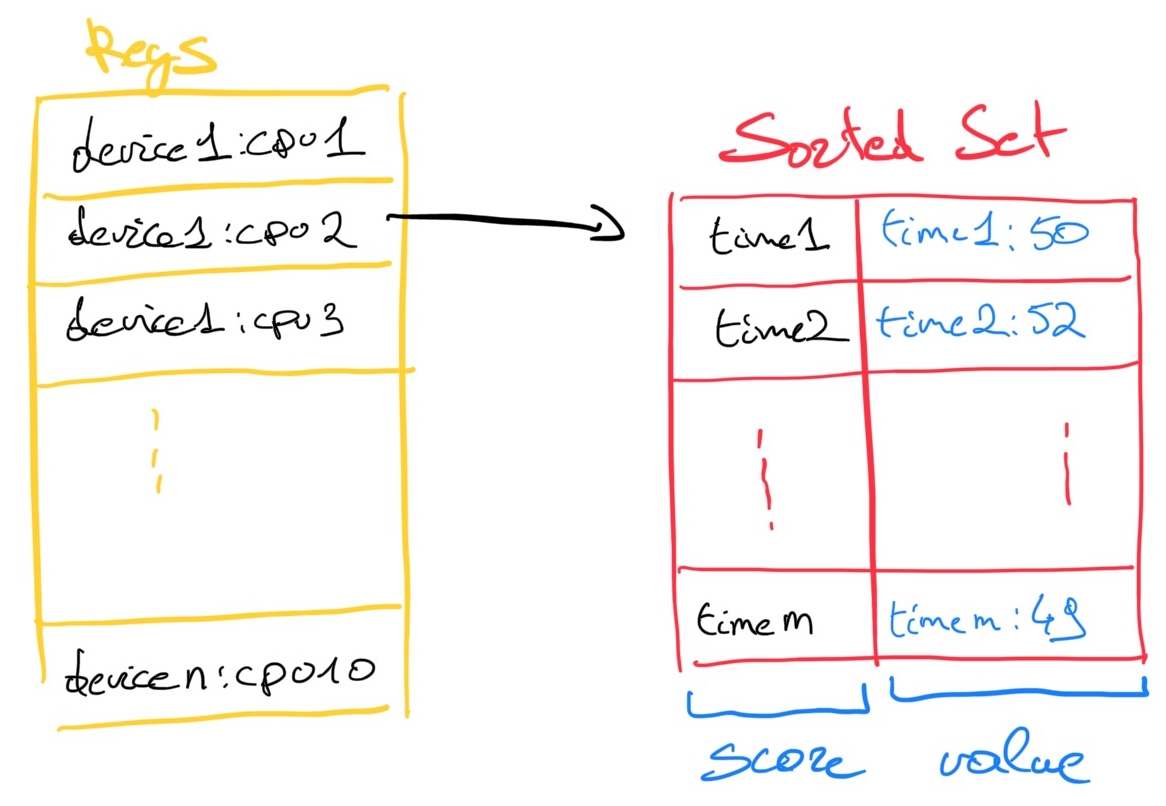 Keys
device1:cpu1
device1:cpu2
device1:cpu3
devicen:cpu10
Sorted Set
time1 time1:50
time2 time2:52
timem timem:49
score value